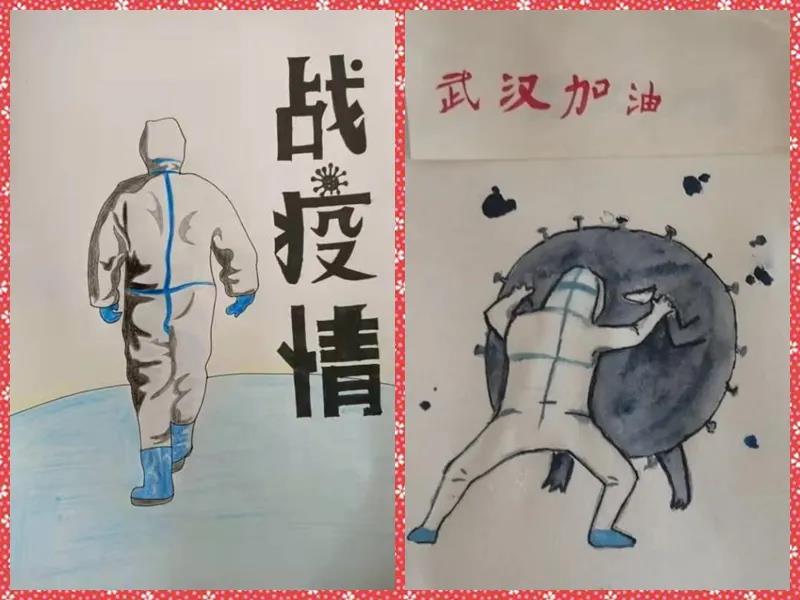 战疫情
武汉加油